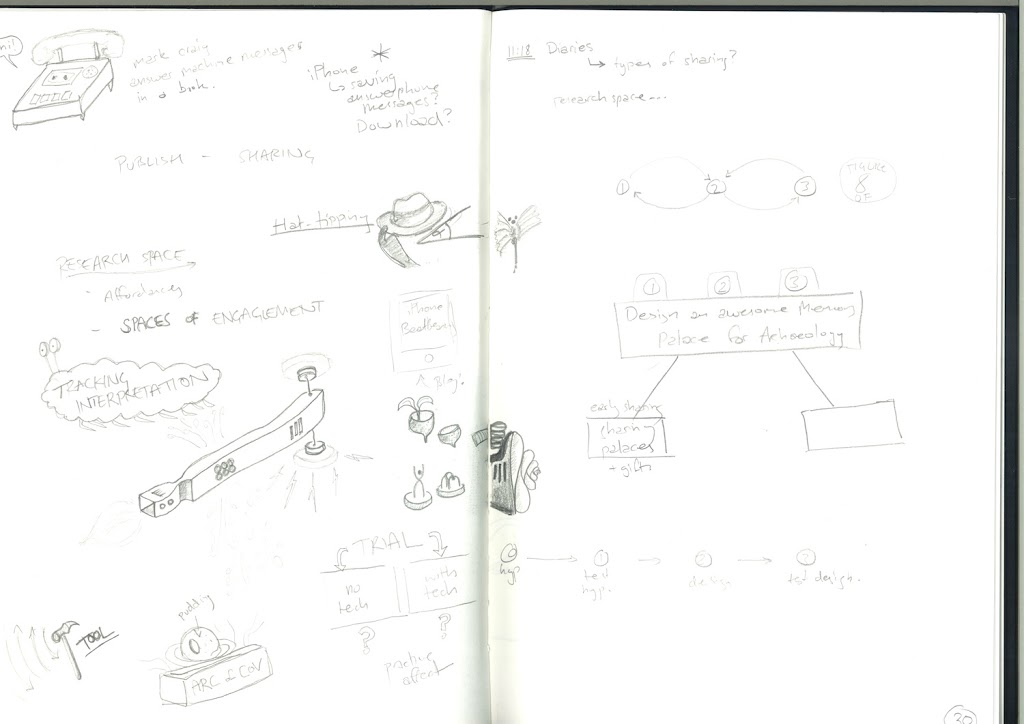 hi!
mark craig
answer machine messages
in a book.
*
iPhone
↳ saving
answerphone
messages?
Download?
PUBLISH - SHARING
Hat-tipping
RESEARCH SPACE
Affordances
- SPACES of ENGAGEMENT
iPhone
TRACKING
INTERPRETATION
TRIAL
no
tech
with
tech
?
?
practice
affect
TOOL
pudding
ARC 2 COV
11:18 Diaries
↳ types of sharing?
research space...
1
2
3
FIGURE
8
OF
1
2
3
Design an awesome Memory
Palace for Archaeology
easily sharing
sharing
palaces
+ gifts
0
hyp
1
test
hyp.
2
design
3
test design.
30